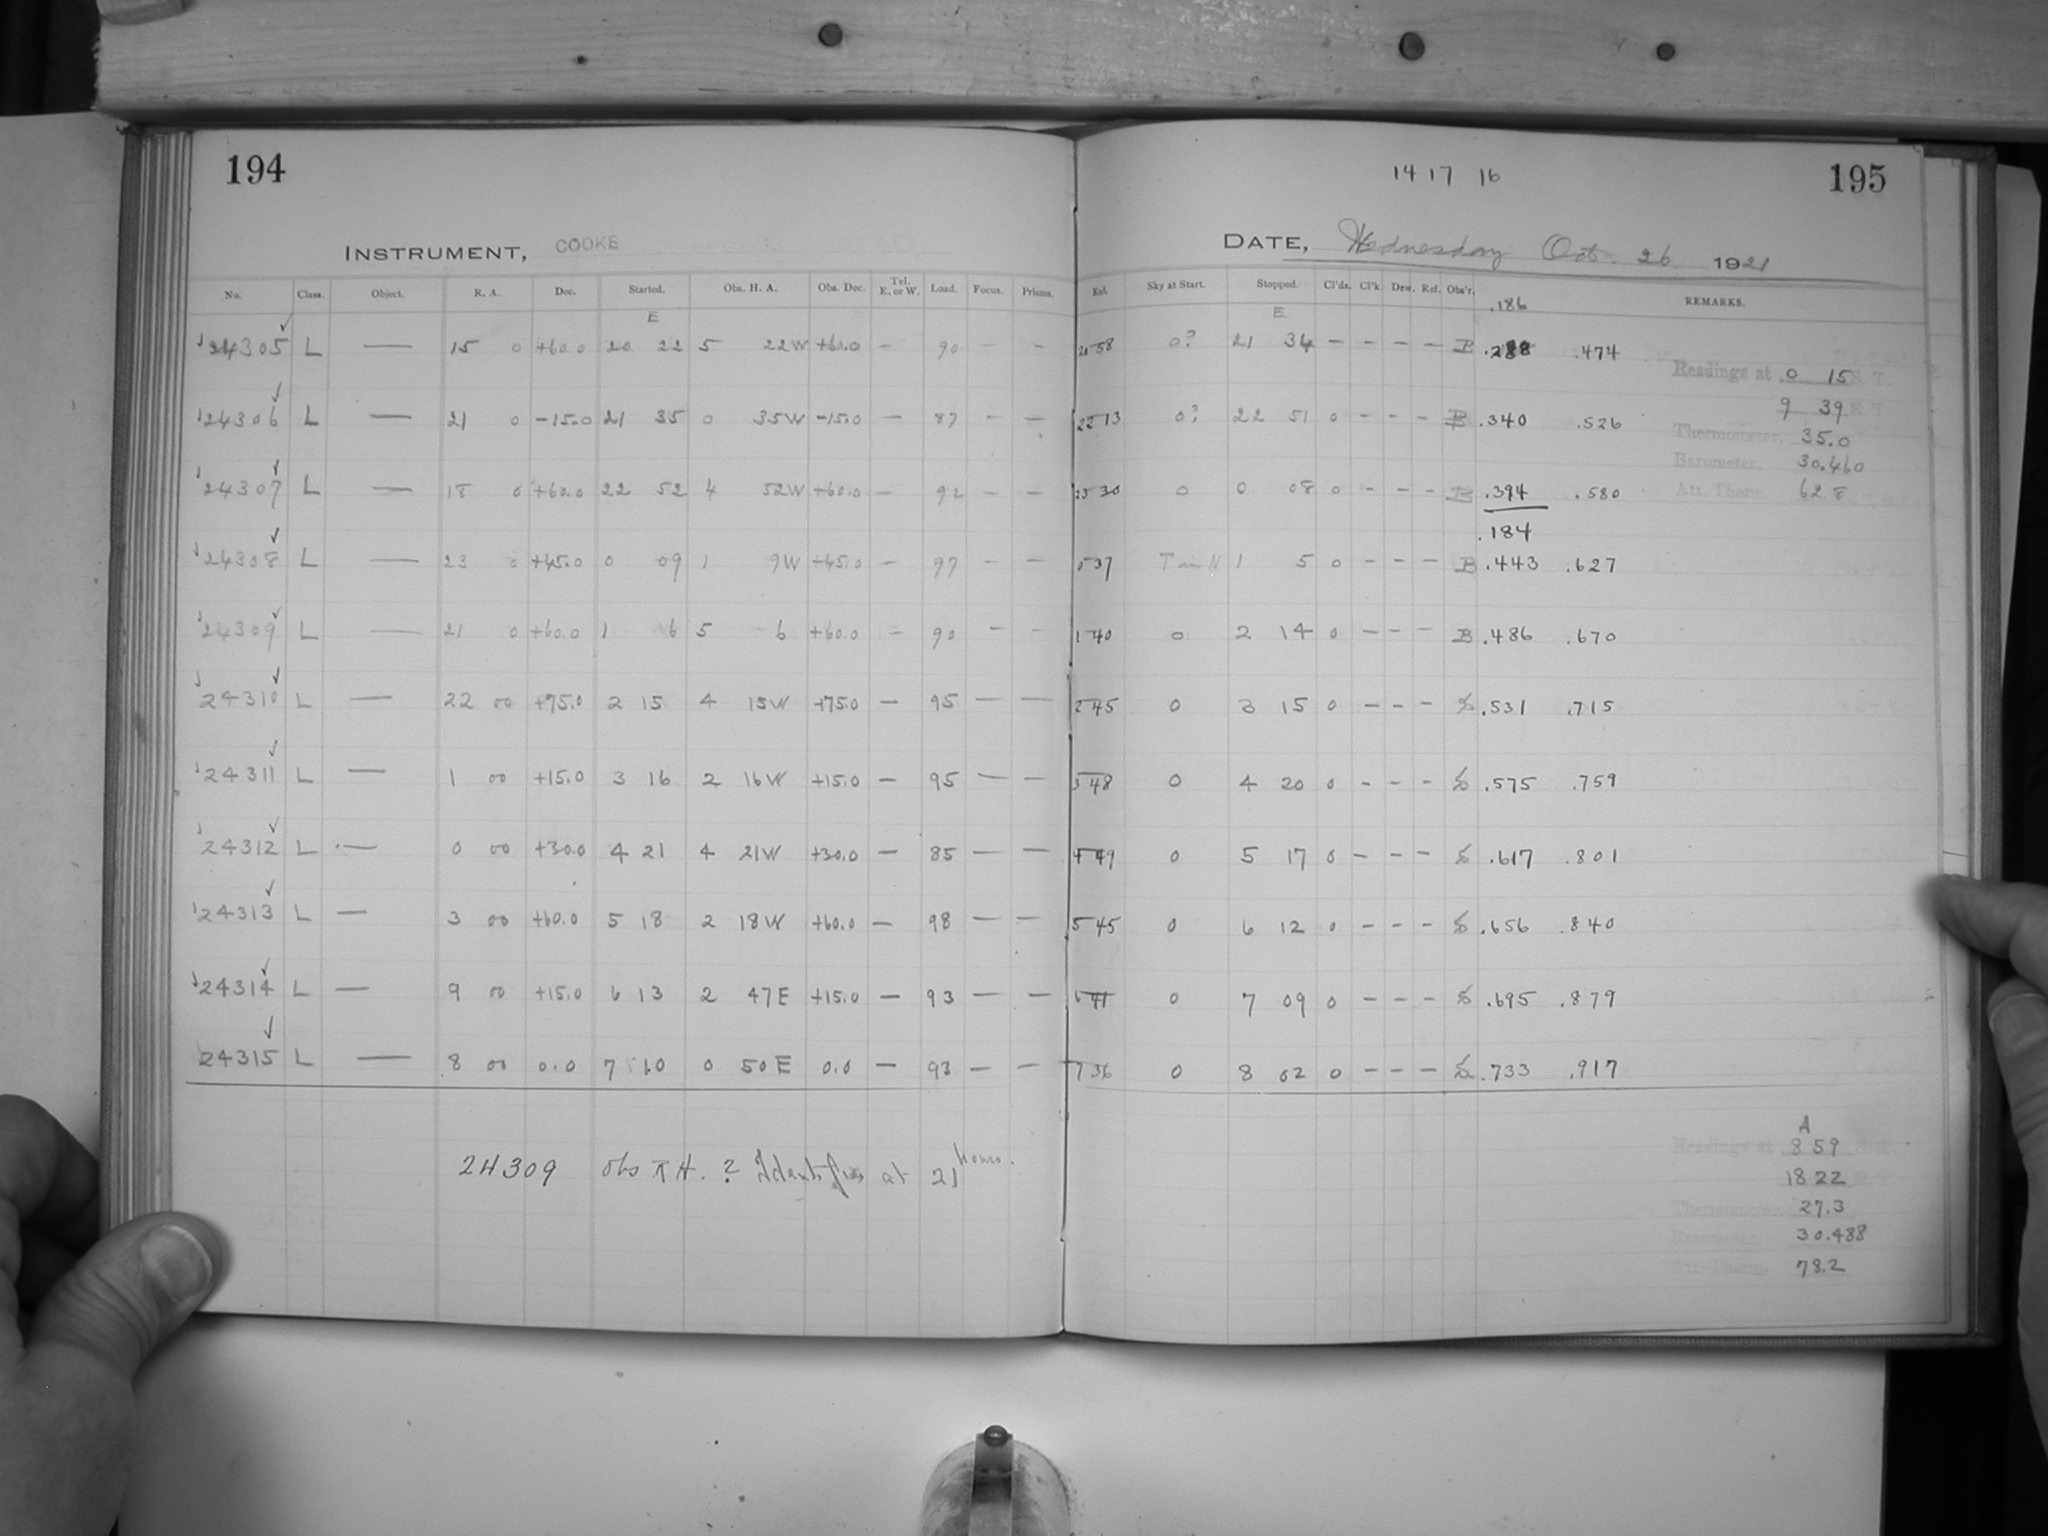 194
INSTRUMENT, COOKE
No. Class. Object. R. A. Dec. Started. Obs. H. A. Obs. Dec. Tel. E. or W. Load. Focus. Prisms.
E
24305 L — 15 0 +60.0 20 22 5 22W +60.0 — 90 — —
24306 L — 21 0 -15.0 21 35 0 35W -15.0 — 87 — —
24307 L — 18 0 +60.0 22 52 4 52W +60.0 — 92 — —
24308 L — 23 0 +45.0 0 09 1 9W +45.0 — 97 — —
24309 L — 21 0 +60.0 1 6 5 6 +60.0 — 90 — —
24310 L — 22 00 +75.0 2 15 4 15W +75.0 — 95 — —
24311 L — 1 00 +15.0 3 16 2 16W +15.0 — 95 — —
24312 L — 0 00 +30.0 4 21 4 21W +30.0 — 85 — —
24313 L — 3 00 +60.0 5 18 2 18W +60.0 — 98 — —
24314 L — 9 00 +15.0 6 13 2 47E +15.0 — 93 — —
24315 L — 8 00 0.0 7 10 0 50E 0.0 — 93 — —
24309 obs R H. ? Identifies at 21 hours.
14 17 16
195
DATE, Wednesday Oct. 26 1921
Exl. Sky at Start. Stopped. Cl'ds. Cl'k. Dew. Ref. Obs'r. REMARKS.
E .186
20 58 0? 21 34 — — — — B .288 .474
22 13 0? 22 51 0 — — — B .340 .526
23 30 0 0 08 0 — — — B .394 .580
.184
0 37 1 5 0 — — — B .443 .627
1 40 0 2 14 0 — — — B .486 .670
2 45 0 3 15 0 — — — .531 .715
3 48 0 4 20 0 — — — .575 .759
4 49 0 5 17 0 — — — .617 .801
5 45 0 6 12 0 — — — .656 .840
6 41 0 7 09 0 — — — .695 .879
7 36 0 8 02 0 — — — .733 .917
Readings at 0 15 S. T.
9 39 E. T.
Thermometer. 35.0
Barometer. 30.460
Att. Therm. 62.8
A
Readings at 8 59
18 22
Thermometer. 27.3
Barometer. 30.488
Att. Therm. 78.2